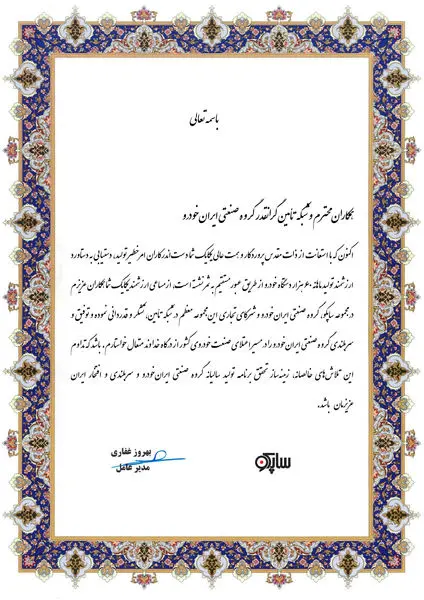 باسمه تعالی
همکاران محترم و شبکه تأمین گرانقدر گروه صنعتی ایران خودرو
اکنون که با استعانت از ذات مقدس پروردگار و همت عالی یکایک شما دست اندرکاران امر خطیر تولید، دستیابی به دستاورد
ارزشمند تولید ماهانه ۶۰ هزار دستگاه خودرو از طریق عبور مستقیم به ثمر نشسته است، از مساعی ارزشمند یکایک شما همکاران عزیزم
در مجموعه ساپکو، گروه صنعتی ایران خودرو و شرکای تجاری این مجموعه معظم در شبکه تأمین، تشکر و قدردانی نموده و توفیق و
سربلندی گروه صنعتی ایران خودرو را در مسیر اعتلای صنعت خودروی کشور از درگاه خداوند متعال خواستارم. باشد که تداوم
این تلاش‌های خالصانه، زمینه‌ساز تحقق برنامه تولید سالیانه گروه صنعتی ایران خودرو و سربلندی و افتخار ایران
عزیزمان باشد.
بهروز غفاری
مدیر عامل
ساپکو